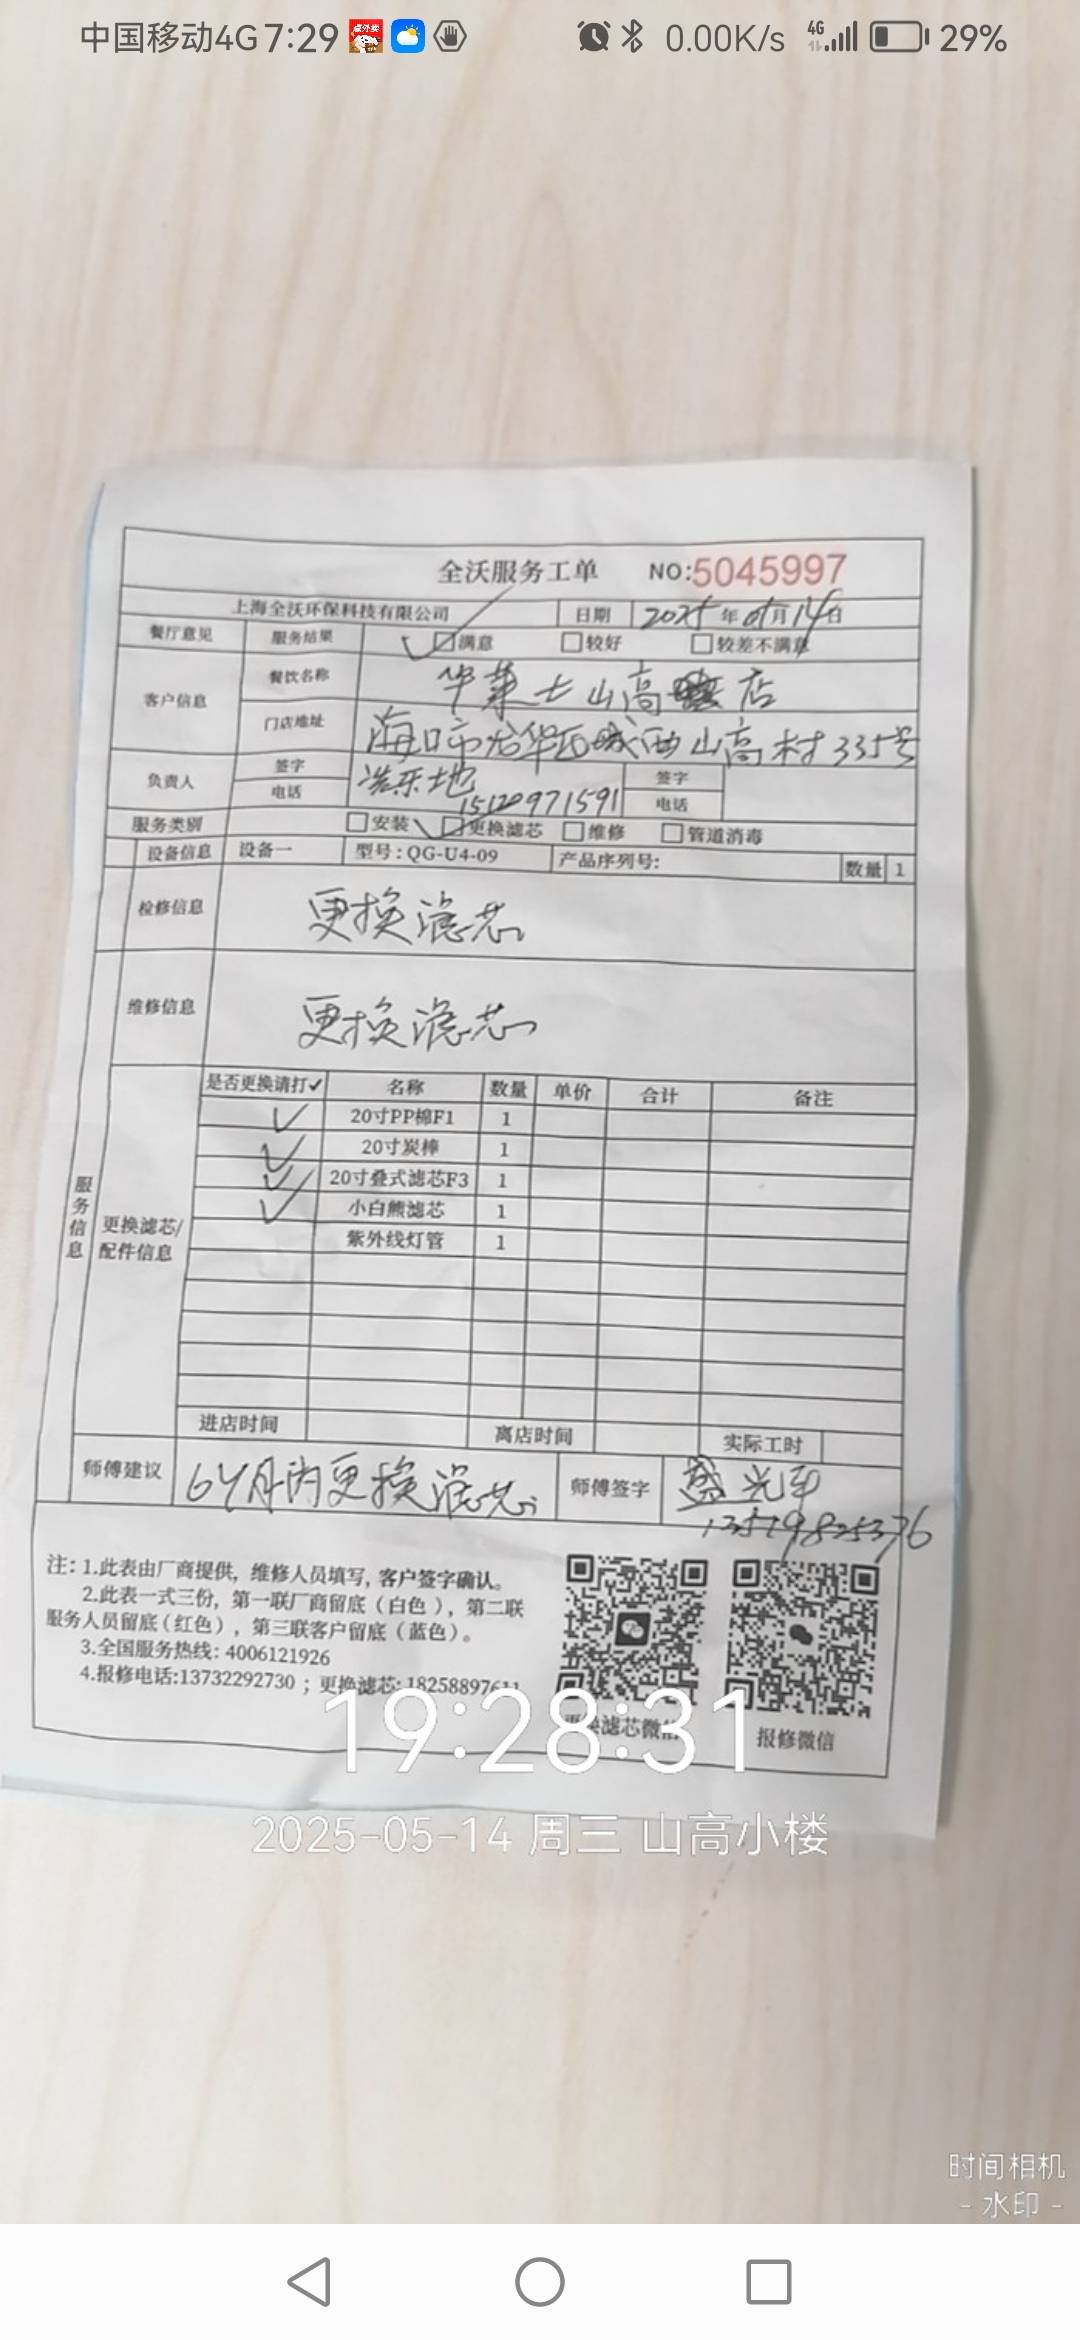 中国移动4G 7:29 0.00K/s 4G 29%
全沃服务工单 NO:5045997
上海全沃环保科技有限公司 日期 2025年05月14日
餐厅意见 服务结果 满意 较好 较差不满意
客户信息 餐饮名称 华莱士山高店
门店地址 海口市龙华区城西山高村335号
负责人 签字 签字
电话 15120971591 电话
服务类别 安装 更换滤芯 维修 管道消毒
设备信息 设备一 型号:QG-U4-09 产品序列号: 数量 1
检修信息 更换滤芯
维修信息 更换滤芯
服务信息
更换滤芯/配件信息
是否更换请打✓ 名称 数量 单价 合计 备注
✓ 20寸PP棉F1 1
✓ 20寸炭棒 1
✓ 20寸叠式滤芯F3 1
✓ 小白熊滤芯 1
紫外线灯管 1
进店时间 离店时间 实际工时
师傅建议 6个月内更换滤芯 师傅签字 盛光平
13519825376
注: 1.此表由厂商提供, 维修人员填写, 客户签字确认。
2.此表一式三份, 第一联厂商留底(白色), 第二联
服务人员留底(红色), 第三联客户留底(蓝色)。
3.全国服务热线: 4006121926
4.报修电话:13732292730 ; 更换滤芯: 18258897611
更换滤芯微信 报修微信
19:28:31
2025-05-14 周三 山高小楼
时间相机
- 水印 -